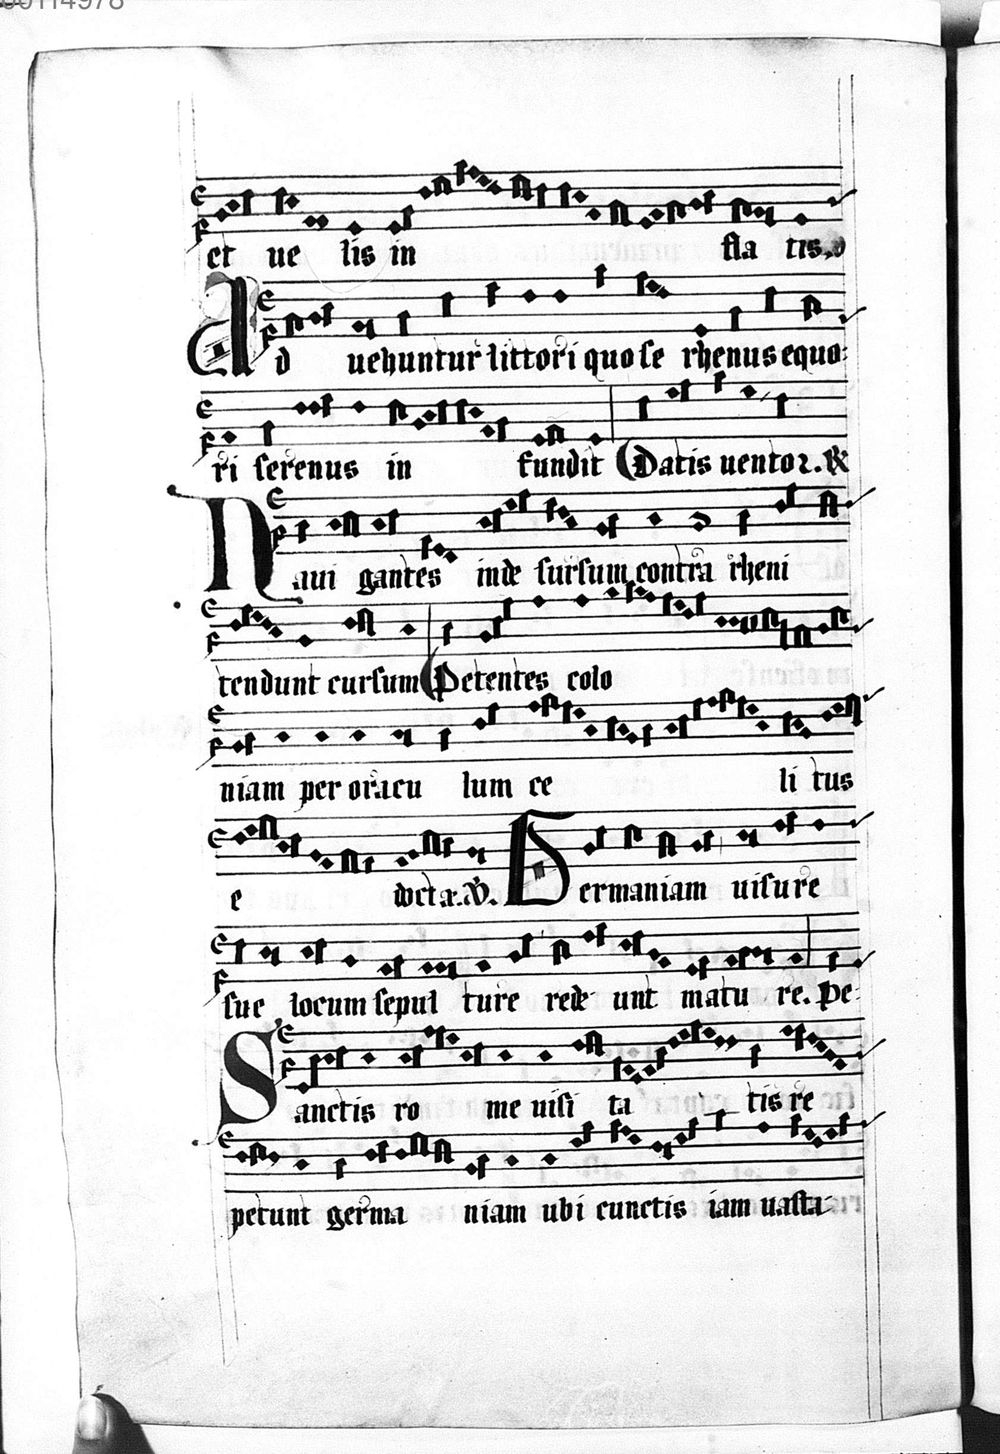 00114978
et ue lis in fla tis.
Ad uehuntur littori quo se rhenus equo-
ri serenus in fundit Datis uento2. R
Naui gantes inde sursum contra rheni
tendunt cursum Petentes colo
niam per oracu lum ce li tus
e docta. V. Germaniam uisure
sue locum sepul ture rede unt matu re. Pe-
Sanctis ro me uisi ta tis re
petunt germa niam ubi cunctis iam uasta-